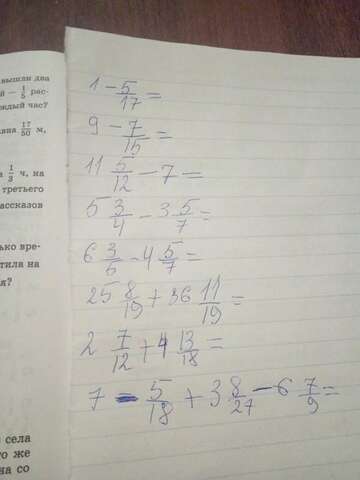 вышли два
й – 1/5 рас-
каждый час?
вна 17/50 м,
а 1/3 ч, на
третьего
рассказов
лько вре-
тила на
я?
села
то же
на со
1 - 5/17 =
9 - 7/15 =
11 5/12 - 7 =
5 3/4 - 3 5/7 =
6 3/5 - 4 5/7 =
25 8/19 + 36 11/19 =
2 7/12 + 4 13/18 =
7 - 5/18 + 3 8/27 - 6 7/9 =